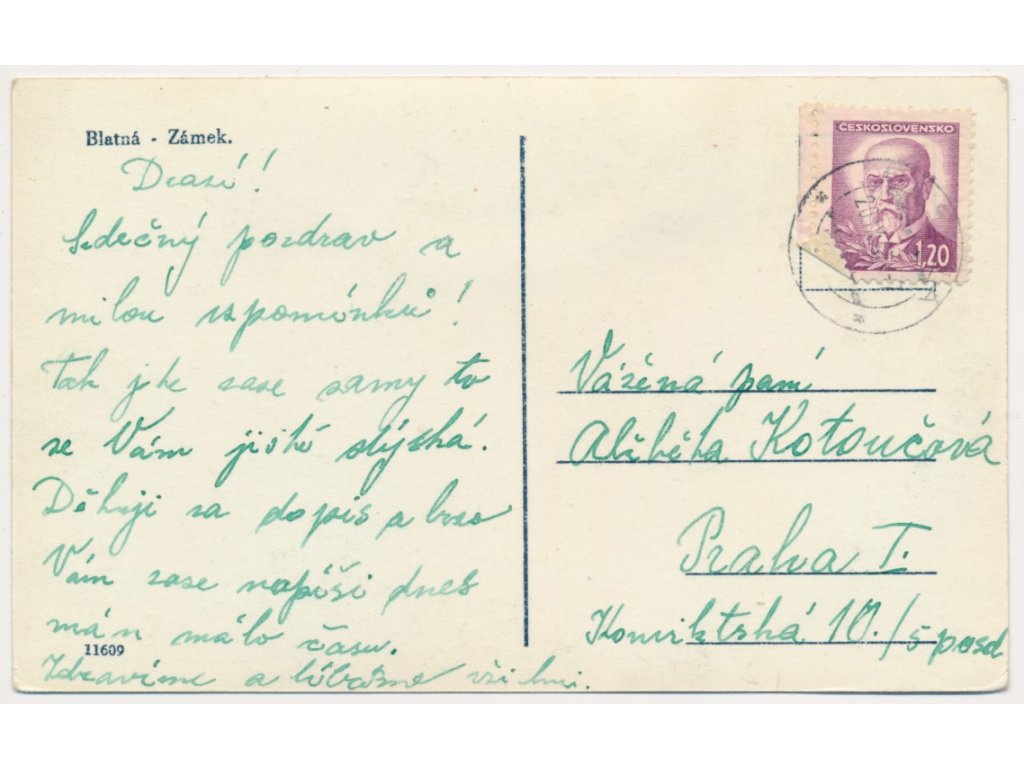 Blatná - Zámek.
Drazí!
Srdečný pozdrav a
milou vzpomínku!
Tak jste zase samy to
se Vám jistě stýská.
Děkuji za dopis a brzo
Vám zase napíši dnes
mám málo času.
11609
Zdravíme a líbáme všichni.
ČESKOSLOVENSKO
1,20
Vážená paní
Alžběta Kotoučová
Praha I.
Konviktská 10./5 posch